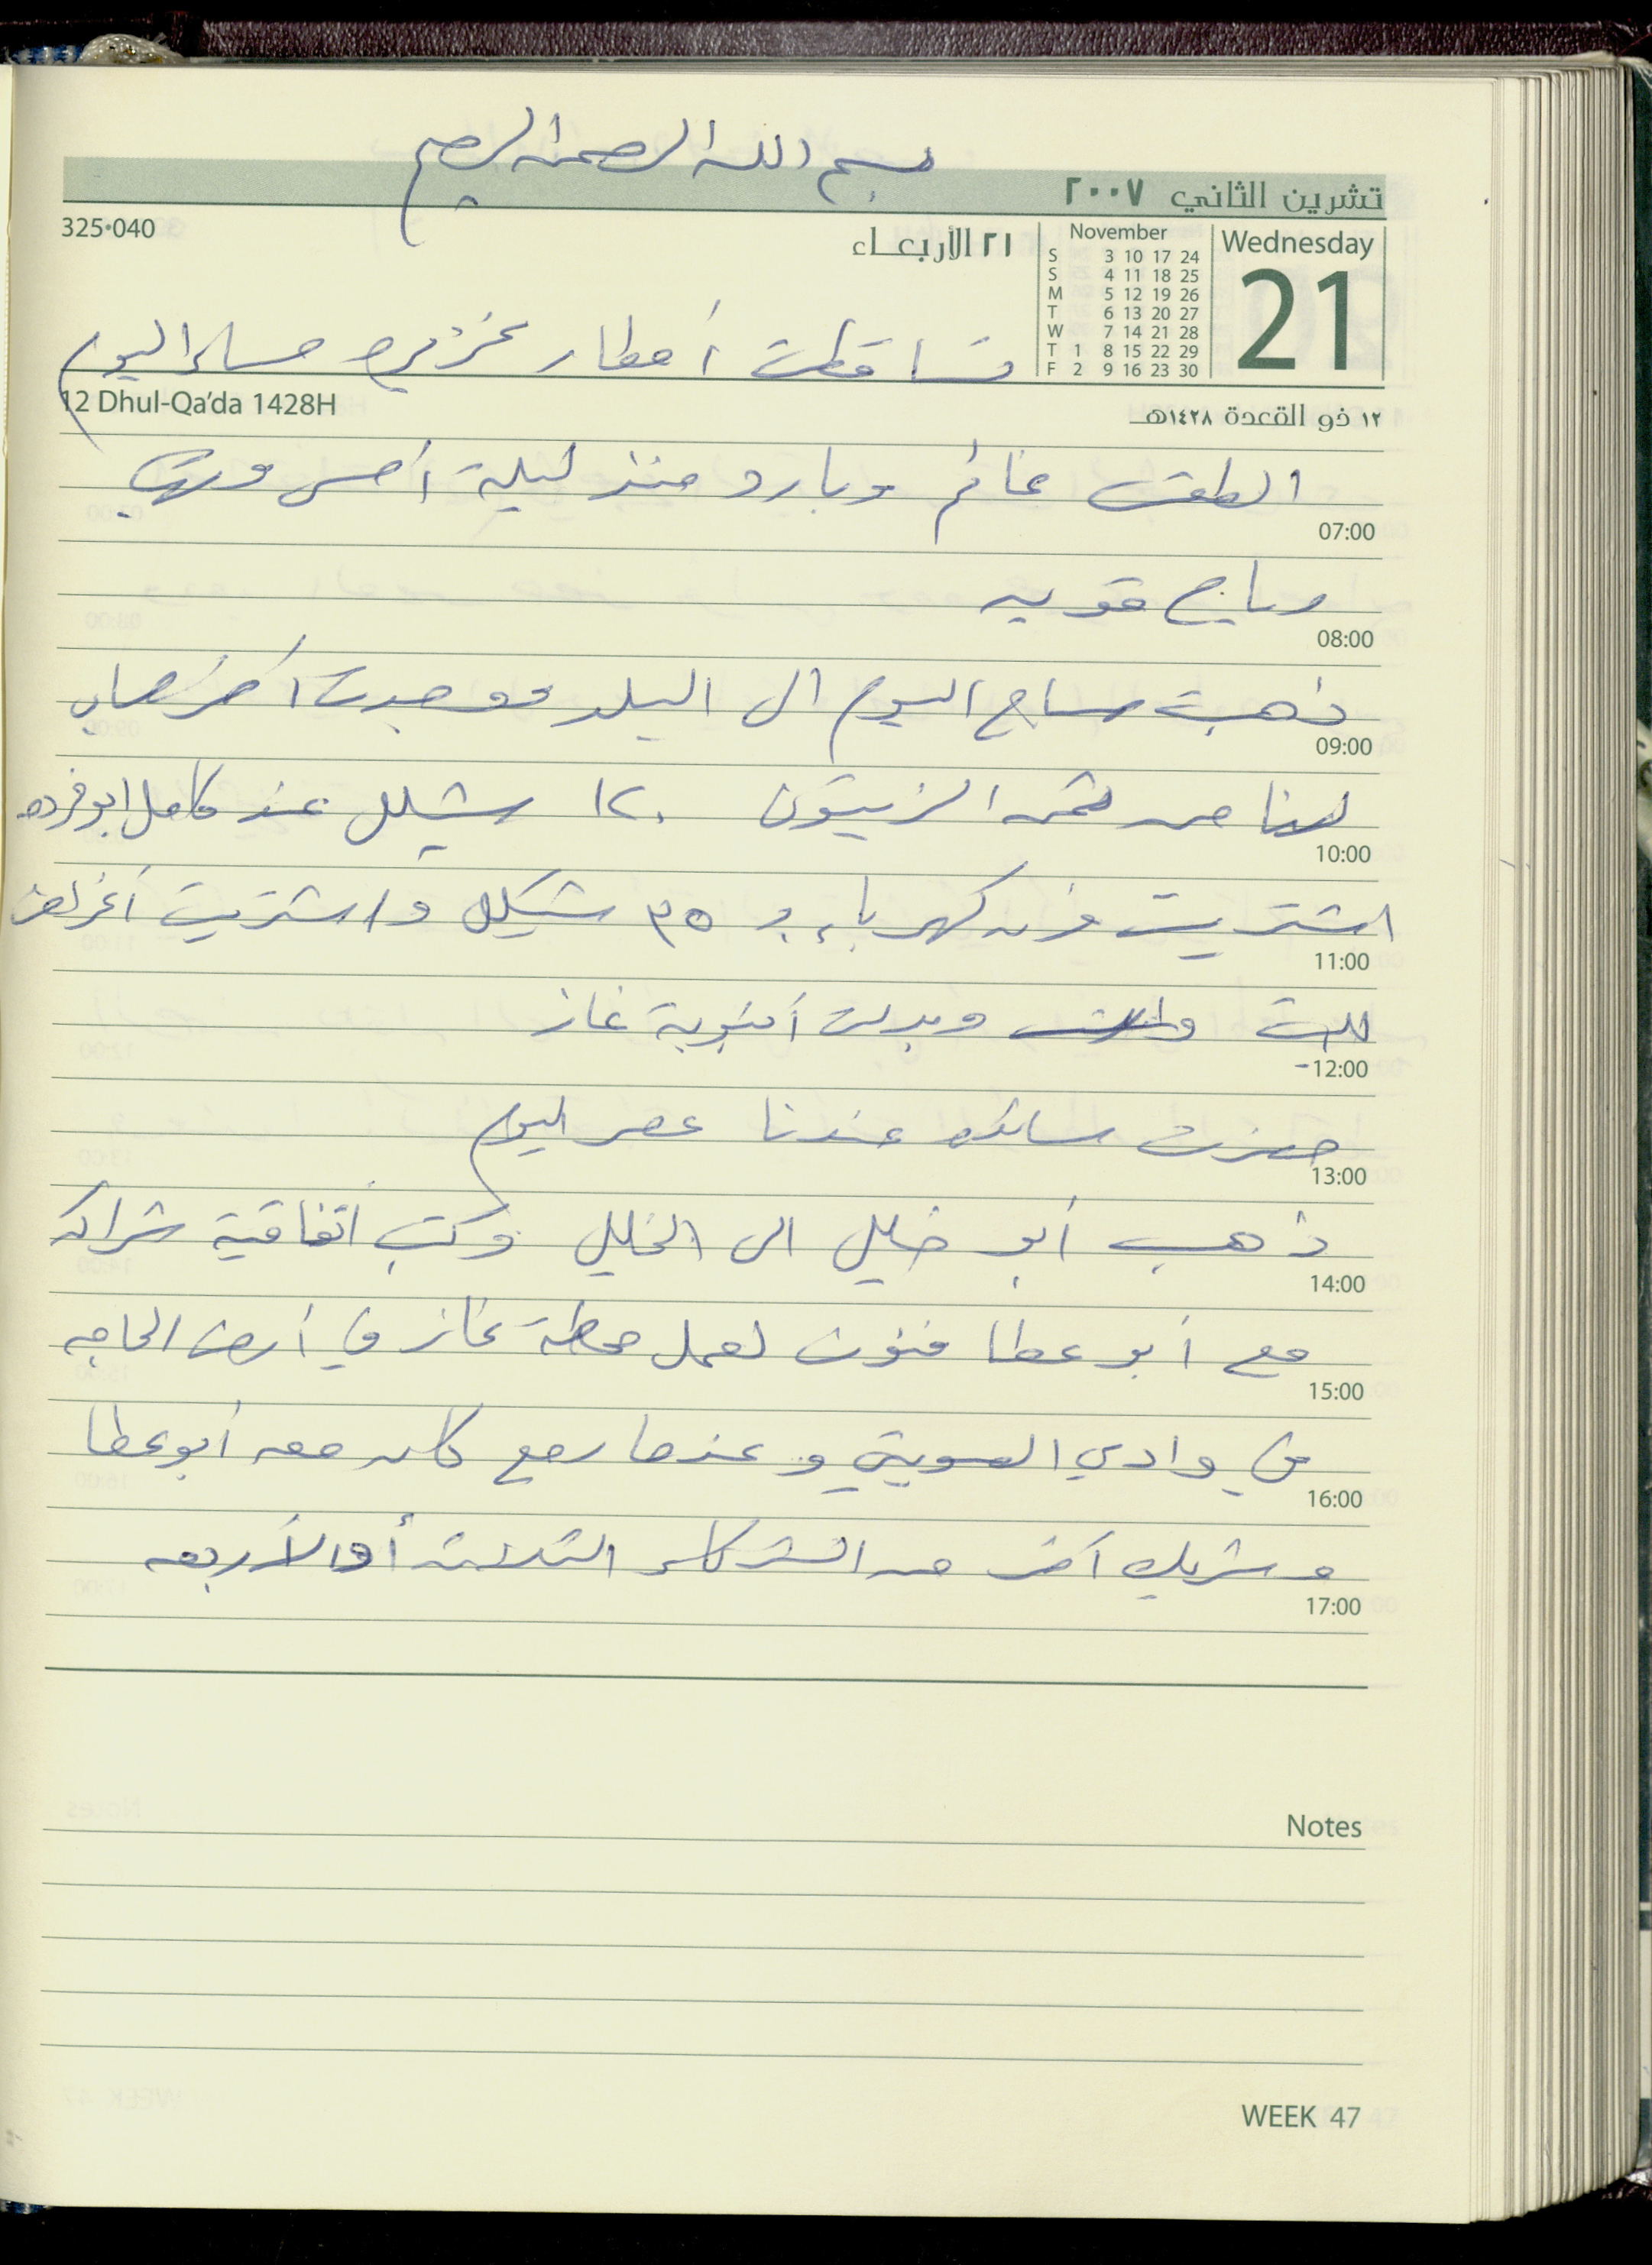 بسم الله الرحمن الرحيم
تشرين الثاني ٢٠٠٧
325·040
٢١ الأربعاء
November
Wednesday
21
S 3 10 17 24
S 4 11 18 25
M 5 12 19 26
T 6 13 20 27
W 7 14 21 28
T 1 8 15 22 29
F 2 9 16 23 30
تساقطت أمطار غزيره مساء اليوم
12 Dhul-Qa'da 1428H
١٢ ذو القعدة ١٤٢٨هـ
الطقس غائم وبارد منذ ليلة أمس وتهب
07:00
رياح قويه
08:00
ذهبت صباح اليوم الى البلد ووجدت آخر حساب
09:00
لنا من ثمن الزيتون ١٢٠ شيكل عند كامل ابو فرده
10:00
اشتريت فرن كهرباء بـ ٣٥ شيكل واشتريت أغراض
11:00
للبيت وبدلت أنبوبة غاز
12:00
سائده عندنا عصر اليوم
13:00
ذهب أبو خليل الى الخليل وكتب اتفاقية شراكه
14:00
مع أبو عطا فنون لعمل محطة غاز في أرض الحاجه
15:00
في وادي وعندما رجع كان معه أبو عطا
16:00
وشريك آخر من الشركاء الثلاثة أو الأربعه
17:00
Notes
WEEK 47